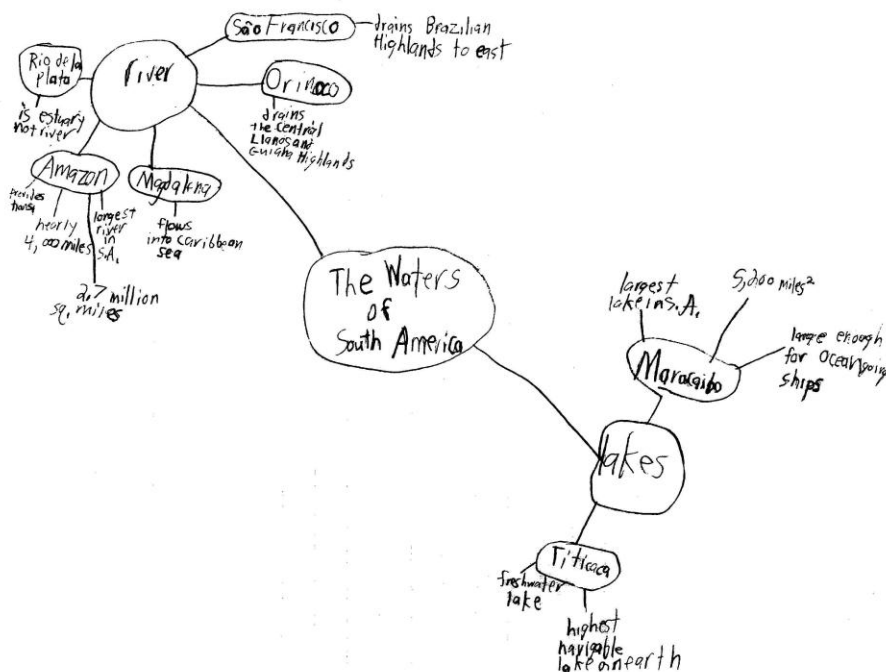 São Francisco
drains Brazilian
Highlands to east
river
Rio de la
Plata
is estuary
not river
Orinoco
drains
the central
Llanos and
Guiana Highlands
Amazon
provides
nearly
4,000 miles
largest
river
in
S.A.
2.7 million
sq. miles
Magdalena
flows
into Caribbean
sea
The Waters
of
South America
largest
lake in S.A.
5,200 miles²
large enough
for Oceangoing
ships
Maracaibo
lakes
Titicaca
freshwater
lake
highest
navigable
lake on earth